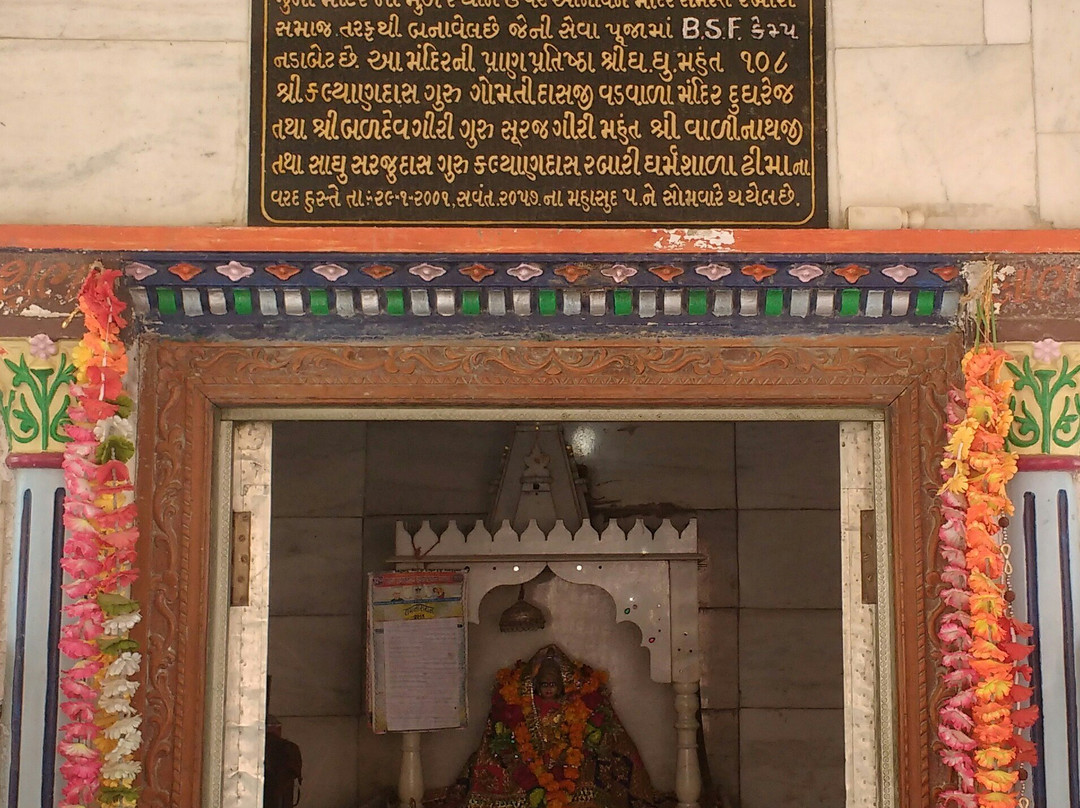 જુના મંદિર ના મુળ સ્થાન ઉપર આ નવિન મંદિર સમસ્ત રબારી
સમાજ તરફથી બનાવેલ છે જેની સેવા પૂજામાં B.S.F. કેમ્પ
નડાબેટ છે. આ મંદિરની પ્રાણ પ્રતિષ્ઠા શ્રી ઘ.ઘુ.મહંત ૧૦૮
શ્રી કલ્યાણદાસ ગુરુ ગોમતીદાસજી વડવાળા મંદિર દુધરેજ
તથા શ્રી બળદેવગીરી ગુરુ સૂરજગીરી મહંત શ્રી વાળીનાથજી
તથા સાધુ સરજુદાસ ગુરુ કલ્યાણદાસ રબારી ધર્મશાળા ઢીમાના
વરદ હસ્તે તાઃ૨૯-૧-૨૦૦૧,સવંત.૨૦૫૭ ના મહાસુદ ૫ ને સોમવારે થયેલ છે.